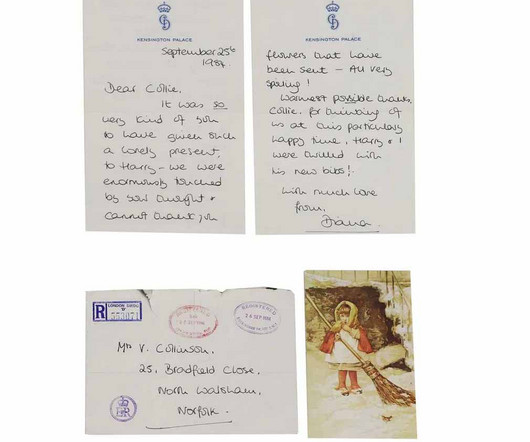 KENSINGTON PALACE
September 25th
1984
Dear Collie,
It was so
very kind of you
to have given such
a lovely present
to Harry - we were
enormously touched
by your thought &
cannot thank you
KENSINGTON PALACE
flowers that have
been sent - All very
spoiling!
Warmest possible thanks,
Collie, for thinking of
us at this particularly
happy time, Harry & I
were thrilled with
his new bibs!
with much love
from,
Diana.
R
REGISTERED
REGISTERED
Mrs V. Collinson,
25, Bradfield Close,
North Walsham,
Norfolk.